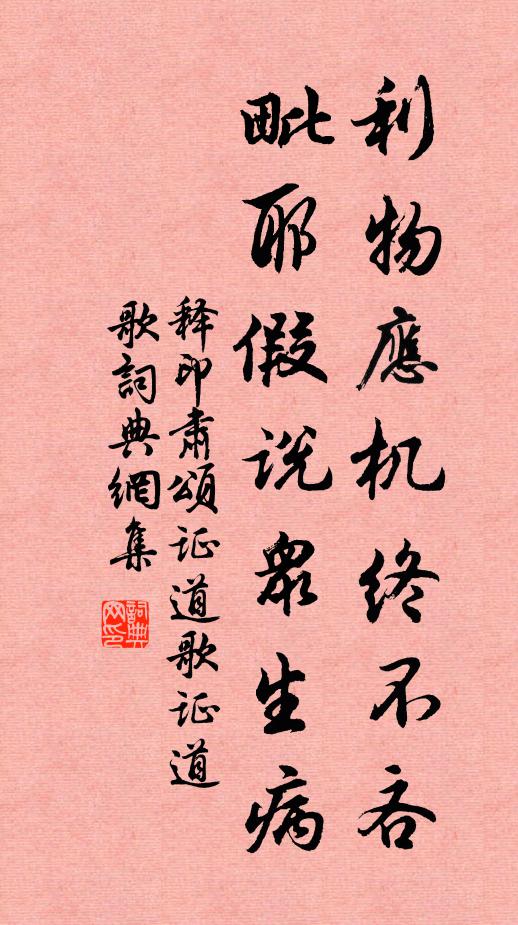 利物應机终不吝
毗耶假说眾生病
释印肃颂证道歌证道
歌詞典網集
詞典网印